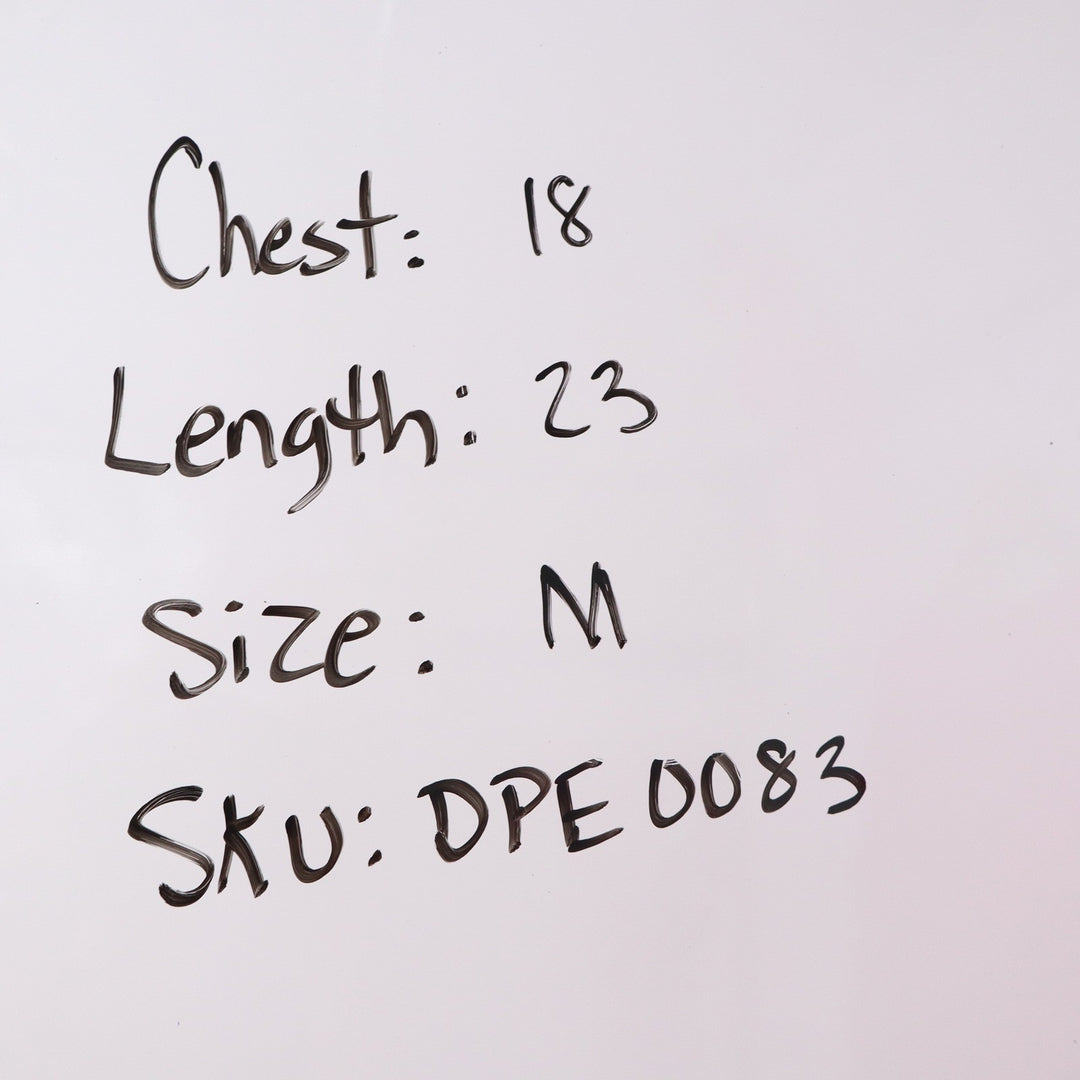 Chest: 18
Length: 23
Size: M
SKU: DPE 0083